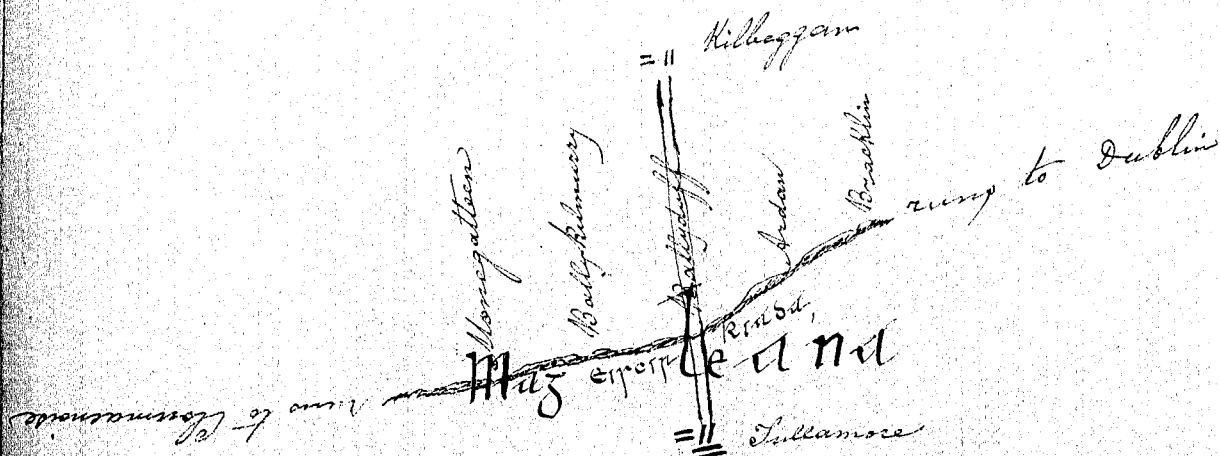 Kilbeggan
Ballykilmurry
Ballyduff
Ardan
Bracklin
runs to Dublin
eiscir Riada,
Mag leana
runs to Clonmacnoise
Tullamore